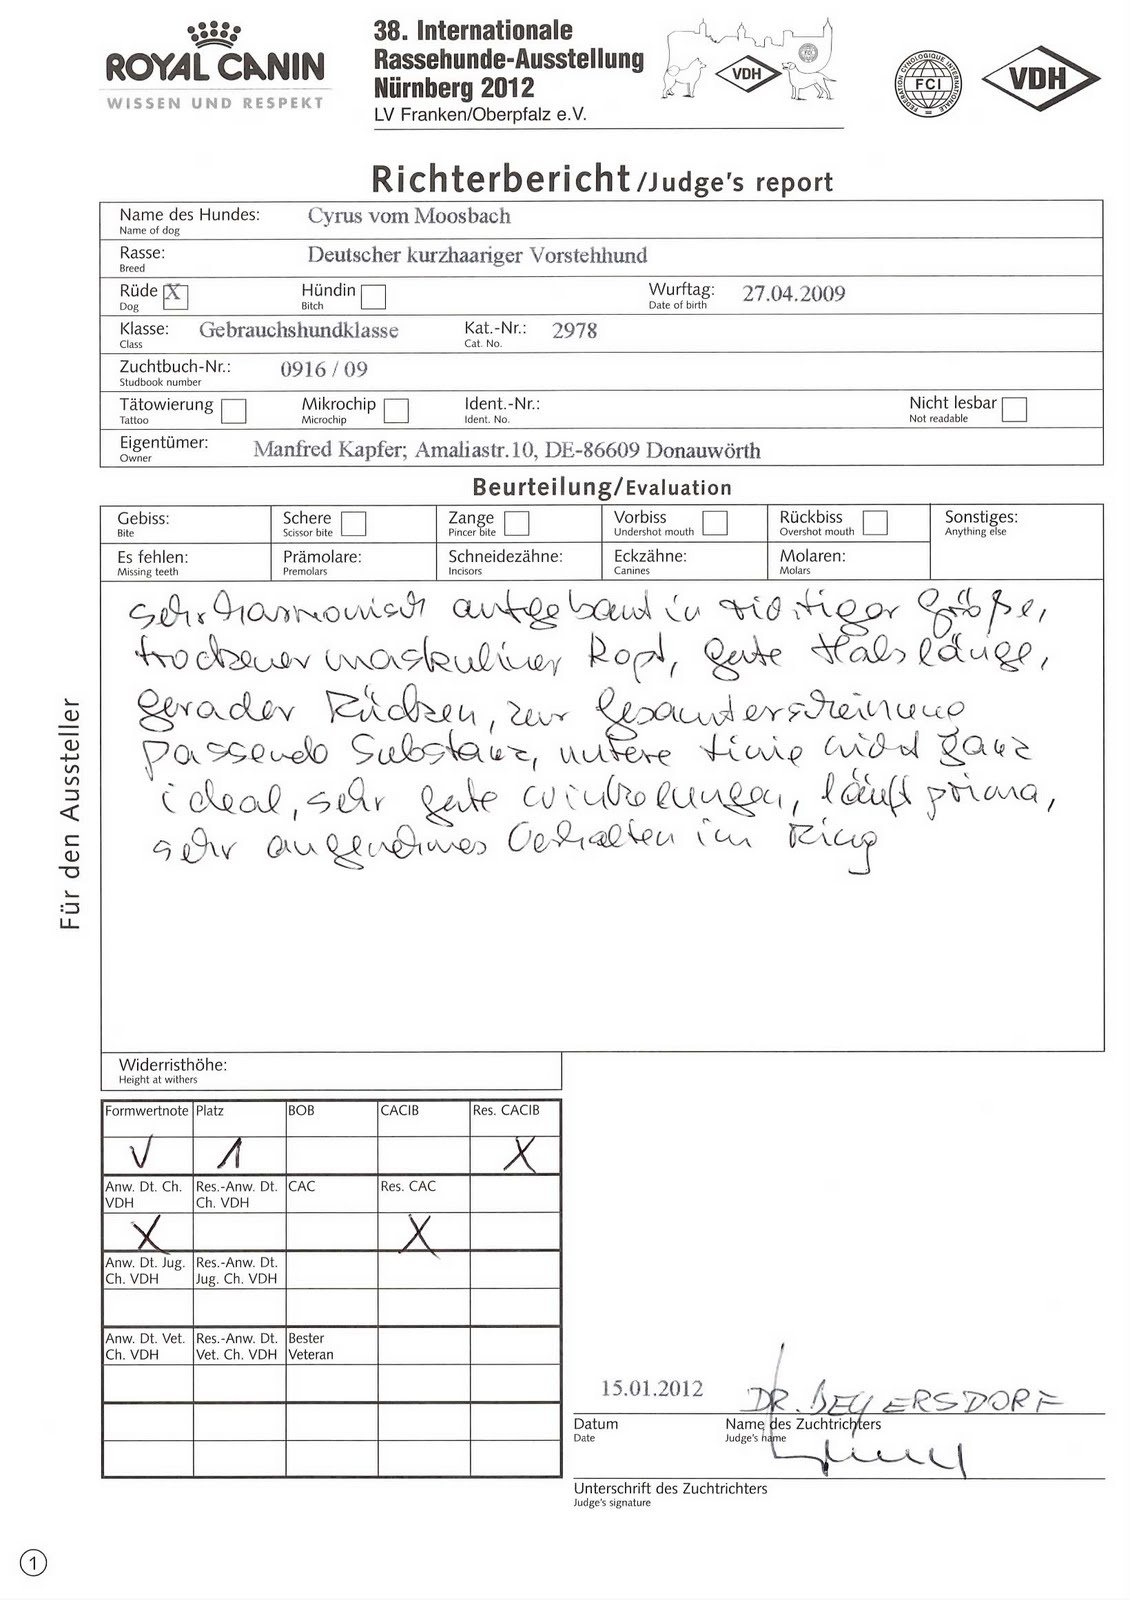 ROYAL CANIN
WISSEN UND RESPEKT
38. Internationale
Rassehunde-Ausstellung
Nürnberg 2012
LV Franken/Oberpfalz e.V.
VDH
FEDERATION CYNOLOGIQUE INTERNATIONALE
FCI
VDH
Richterbericht/Judge's report
Name des Hundes: Cyrus vom Moosbach
Name of dog
Rasse: Deutscher kurzhaariger Vorstehhund
Breed
Rüde X Hündin Wurftag: 27.04.2009
Dog Bitch Date of birth
Klasse: Gebrauchshundklasse Kat.-Nr.: 2978
Class Cat. No.
Zuchtbuch-Nr.: 0916 / 09
Studbook number
Tätowierung Mikrochip Ident.-Nr.: Nicht lesbar
Tattoo Microchip Ident. No. Not readable
Eigentümer: Manfred Kapfer; Amaliastr.10, DE-86609 Donauwörth
Owner
Beurteilung/Evaluation
Gebiss: Schere Zange Vorbiss Rückbiss Sonstiges:
Bite Scissor bite Pincer bite Undershot mouth Overshot mouth Anything else
Es fehlen: Prämolare: Schneidezähne: Eckzähne: Molaren:
Missing teeth Premolars Incisors Canines Molars
sehr harmonisch aufgebaut in richtiger Größe,
trockener maskuliner Kopf, gute Halslänge,
gerader Rücken, zur Gesamterscheinung
passende Substanz, untere Linie nicht ganz
ideal, sehr gute Winkelungen, läuft prima,
sehr angenehmes Verhalten im Ring
Für den Aussteller
Widerristhöhe:
Height at withers
Formwertnote Platz BOB CACIB Res. CACIB
V 1 X
Anw. Dt. Ch. Res.-Anw. Dt. CAC Res. CAC
VDH Ch. VDH
X X
Anw. Dt. Jug. Res.-Anw. Dt.
Ch. VDH Jug. Ch. VDH
Anw. Dt. Vet. Res.-Anw. Dt. Bester
Ch. VDH Vet. Ch. VDH Veteran
15.01.2012 DR. BEYERSDORF
Datum Name des Zuchtrichters
Date Judge's name
Unterschrift des Zuchtrichters
Judge's signature
1